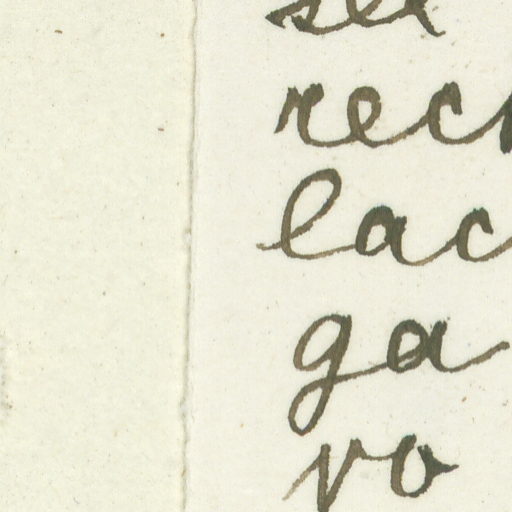 rec
lac
ga
vo